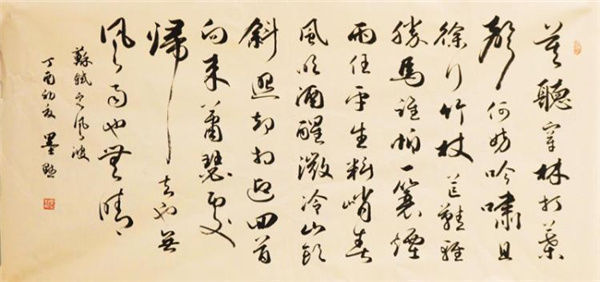 莫聽穿林打葉
聲何妨吟嘯且
徐行竹杖芒鞋輕
勝馬誰怕一蓑煙
雨任平生料峭春
風吹酒醒微冷山頭
斜照却相迎回首
向來蕭瑟處
歸去也無
風雨也無晴
蘇軾定風波
丁酉初夏 墨